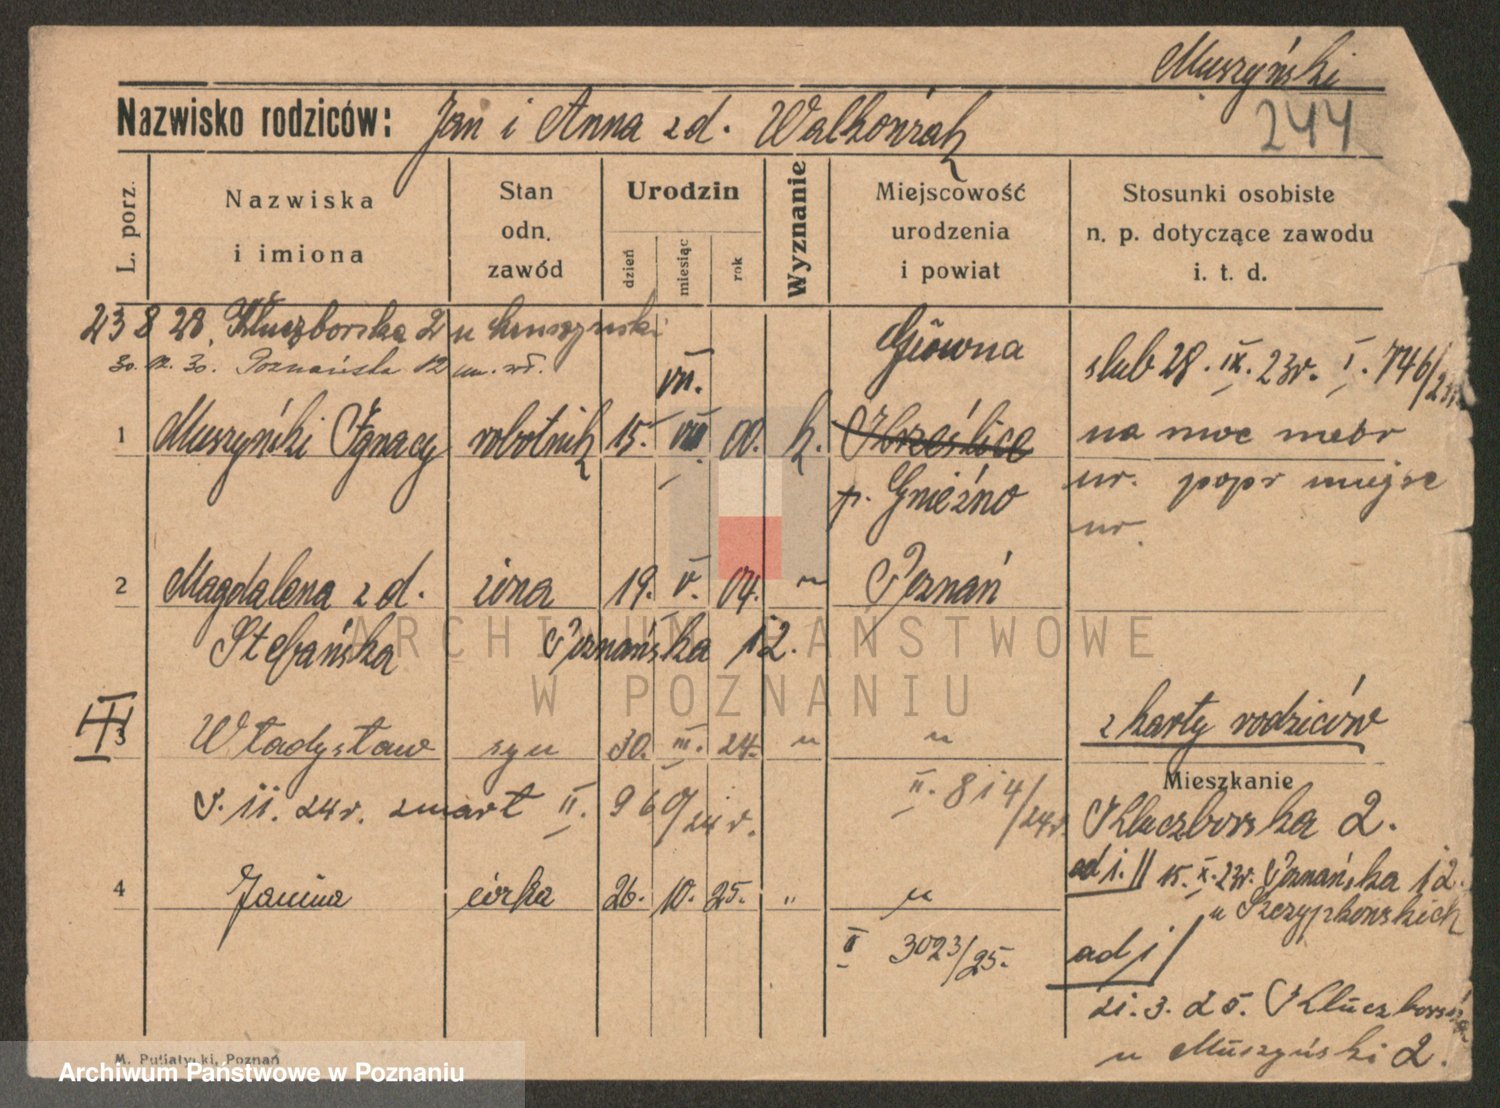 Muszyński
244
Nazwisko rodziców: Jan i Anna z d. Walkowiak
L. porz.
Nazwiska i imiona
Stan odn. zawód
Urodzin
dzień
miesiąc
rok
Wyznanie
Miejscowość urodzenia i powiat
Stosunki osobiste n. p. dotyczące zawodu i. t. d.
23 8 28. Kluczborska 2 u Muszyński
30. 12. 30. Poznańska 12 um. wł.
VII.
Główna
ślub 28. IX. 23r. I. 746/23r.
1 Muszyński Ignacy robotnik 15. VIII 00. k.
na moc metr
p. Gnieźno
ur. popr miejsc
ur.
2 Magdalena z d. żona 19. V. 04. " Poznań
Stefańska Poznańska 12.
ARCHIWUM PAŃSTWOWE
W POZNANIU
z karty rodziców
III
3 Władysław syn 30. III. 24. " "
Mieszkanie
5. 11. 24r. zmart II. 960/24r. II. 814/24r.
Kluczborska 2.
ad 1. 15. X. 23r. Poznańska 12.
4 Janina córka 26. 10. 25. " "
II 3023/25.
ad 1
21. 3. 25. Kluczborska
u Muszyński 2.
M. Putiatycki, Poznań
Archiwum Państwowe w Poznaniu